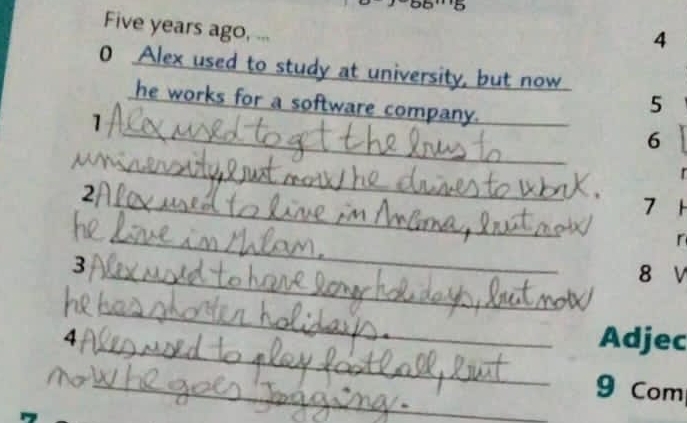 jogging
Five years ago, ...
0 Alex used to study at university, but now
he works for a software company.
1 Alex used to get the bus to
university, but now he drives to work.
2 Alex used to live in Ancona, but now
he live in Milan.
3 Alex used to have longer holidays, but now
he has shorter holidays.
4 Alex used to play football, but
now he goes jogging.
4
5
6
7
8
Adjec
9 Com
7